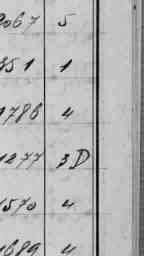 2067 5
351 1
1786 4
1277 3D
1570 4
1689 4